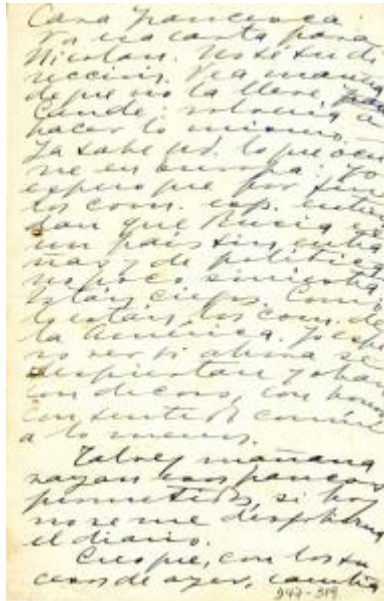 Cara Francesca:
Va una carta para
Nicolau. No sé su di
rección. Vea manera
de que no la lleve
Conde: volvería a
hacer lo mismo.
Ya sabe ud. lo que ocu
rre en Europa. Yo
espero que por fin
los com. esp. entien
dan que Rusia es
un país sin entra
ñas y de política
un poco siniestra.
Están ciegos. Como
lo están los com. de
la América. Yo espe
ro ver si ahora se
despiertan y obran
con decoro, con honra
con sentido común
a lo menos.
Talvez mañana
vayan esos
prometidos, si hoy
no se me
el diario.
Creo que, con los su
cesos de ayer, cambia
947-319